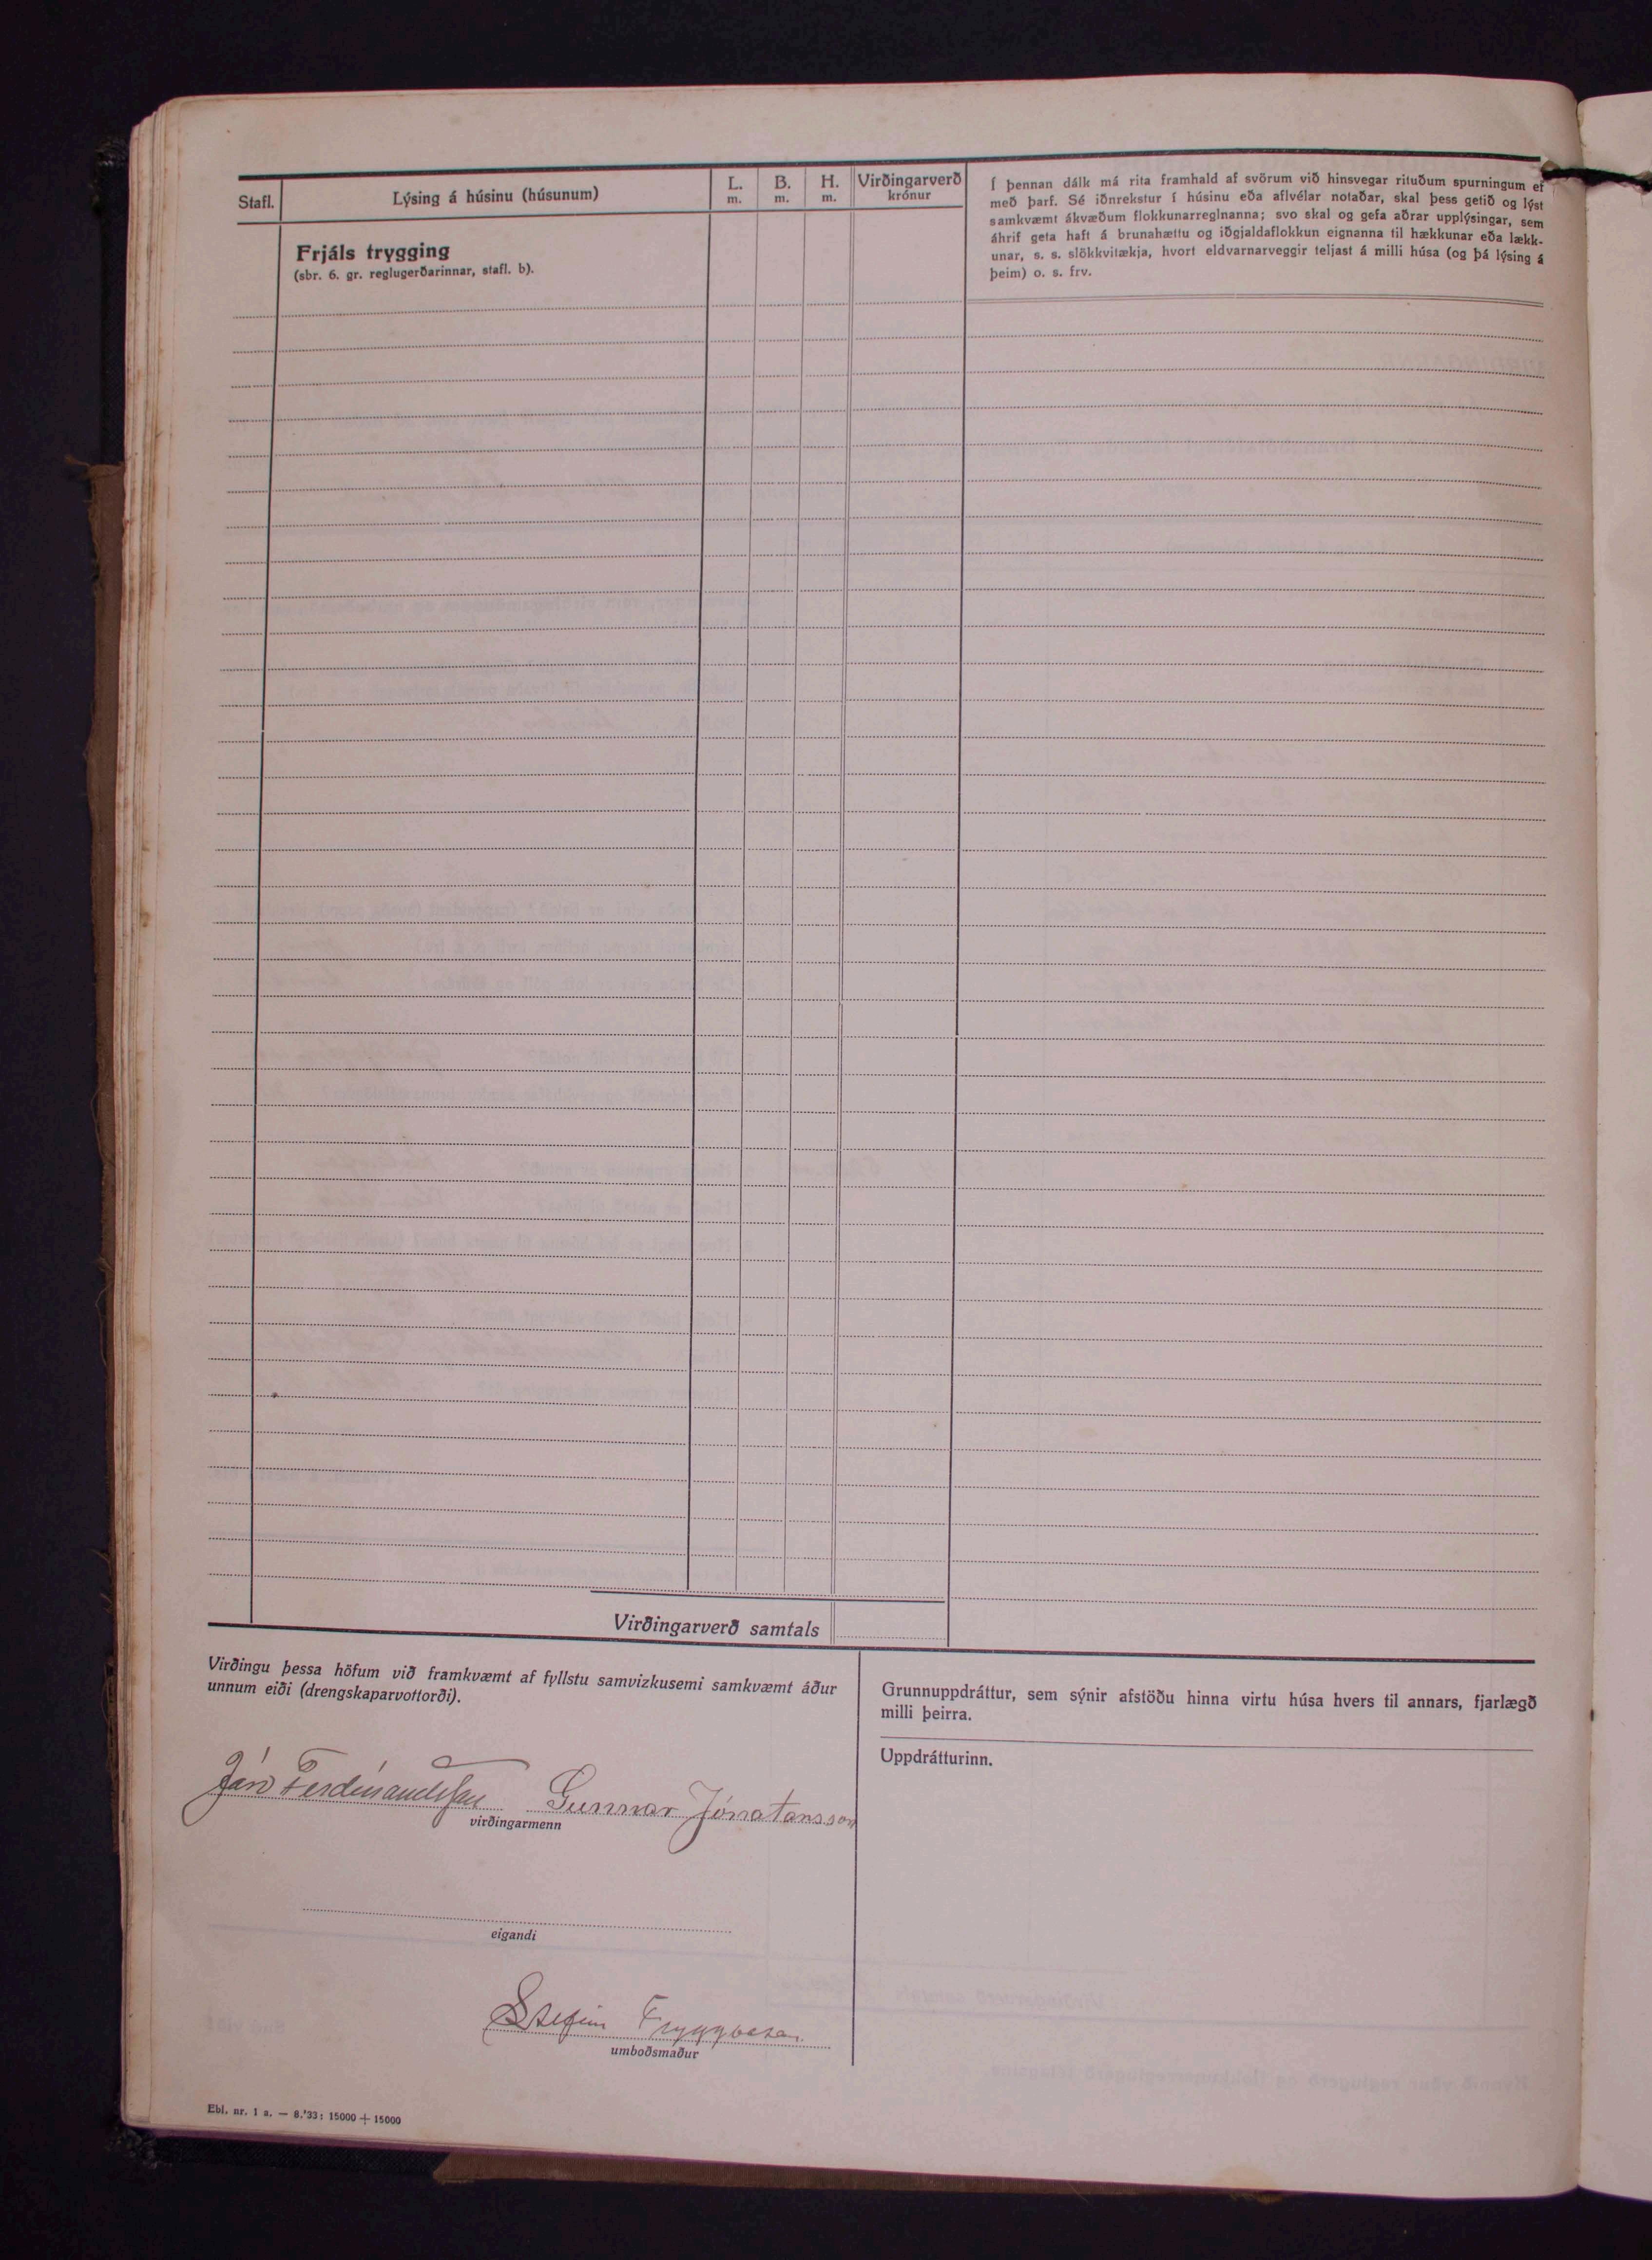 Stafl.
Lýsing á húsinu (húsunum)
L.
m.
B.
m.
H.
m.
Virðingarverð
krónur
Frjáls trygging
(sbr. 6. gr. reglugerðarinnar, stafl. b).
Í þennan dálk má rita framhald af svörum við hinsvegar rituðum spurningum ef
með þarf. Sé iðnrekstur í húsinu eða aflvélar notaðar, skal þess getið og lýst
samkvæmt ákvæðum flokkunarreglnanna; svo skal og gefa aðrar upplýsingar, sem
áhrif geta haft á brunahættu og iðgjaldaflokkun eignanna til hækkunar eða lækk-
unar, s. s. slökkvitækja, hvort eldvarnarveggir teljast á milli húsa (og þá lýsing á
þeim) o. s. frv.
Virðingarverð samtals
Virðingu þessa höfum við framkvæmt af fyllstu samvizkusemi samkvæmt áður
unnum eiði (drengskaparvottorði).
Jón Ferdinandsson Gunnar Jónatansson
virðingarmenn
eigandi
Stefán Tryggvason
umboðsmaður
Grunnuppdráttur, sem sýnir afstöðu hinna virtu húsa hvers til annars, fjarlægð
milli þeirra.
Uppdrátturinn.
Ebl. nr. 1 a. — 8.'33: 15000 + 15000